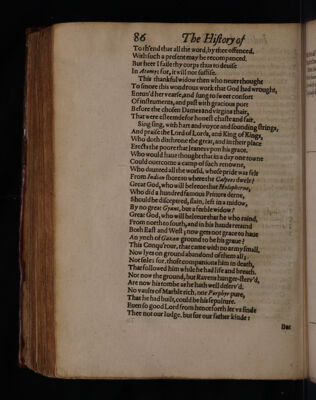 86 The History of
To th'end that all the word, by thee offenced,
With such a present may be recompanced.
But here I faile thy corps thus to deuise
In Atomes for, it will not suffise.
This thankful widow then who neuer thought
To smore this wondrous work that God had wrought,
Enrun'd her vearse, and sung to sweet consort
Of instruments, and past with gracious port
Before the chosen Dames and virgins chair,
That were esteemde for honest chaste and fair,
Sing sing, with hart and voyce and sounding strings,
And praise the Lord of Lords, and King of Kings,
Who doth disthrone the great, and in their place
Erects the poore that leanes vpon his grace.
Who would haue thought that in a day one towne
Could ouercome a camp of such renowne,
Who daunted all the world, whose pride was felt
From Indian shore to where the Calpees dwelt?
Great God, who will beleeue that Holopherne,
Who did a hundred famous Princes derne,
Should be discepered, slain, left in a midow,
By no great Gyant, but a feeble widow?
Great God, who will beleeue that he who raind,
From north to south, and in his hands reraind
Both East and West, now gets not grace to haue
An ynch of Gazan ground to be his graue?
This Conqu'rour, that came with no army small,
Now lyes on ground abandond of them all:
Not soles for, those companions him in death,
That followed him while he had life and breath.
Nor now the ground, but Rauens hunger-steru'd,
Are now his tombe as he hath well deseru'd.
No vaults of Marble rich, nor Porphyr pure,
That he had built, could be his sepulture.
Euen so good Lord from henceforth let vs finde
Thee not our Iudge, but for our father kinde: